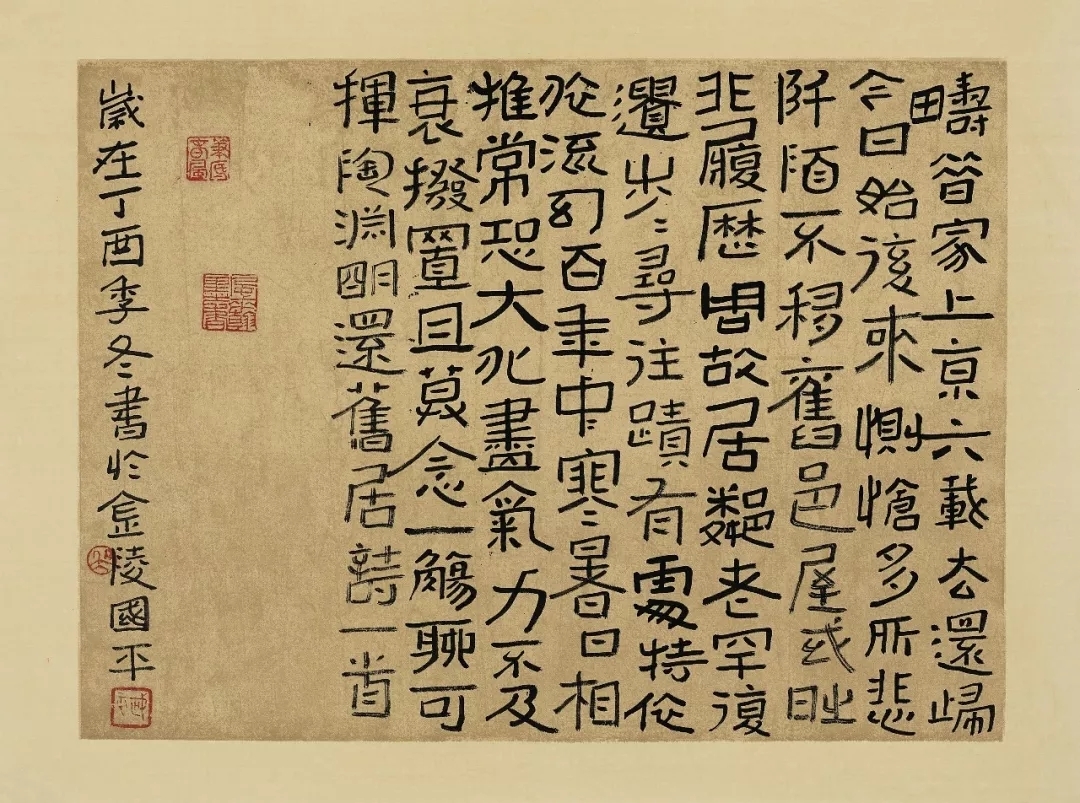 疇昔家上京六載去還歸
今日始復來惻愴多所悲
阡陌不移舊邑屋或時
非履歷周故居鄰老罕復
遺步〻尋往蹟有處特依
依流幻百年中寒暑日相
推常恐大化盡氣力不及
衰撥置且莫念一觴聊可
揮陶淵明還舊居詩一首
歲在丁酉季冬書於金陵國平